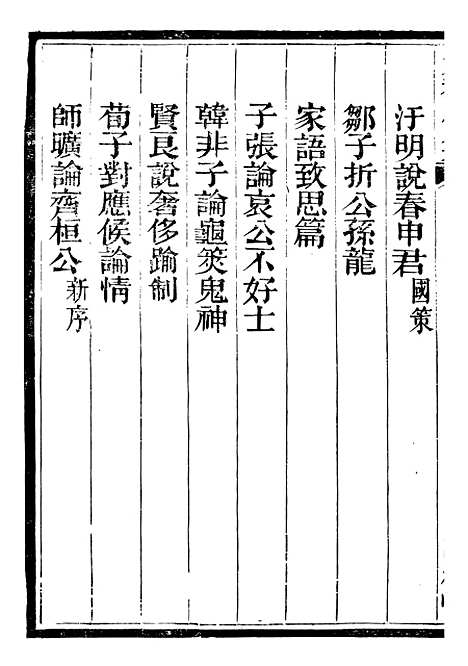 汙明說春申君國策
鄒子折公孫龍
家語致思篇
子張論哀公不好士
韓非子論龜筴鬼神
賢良說奢侈踰制
荀子對應侯論情
師曠論齊桓公新序